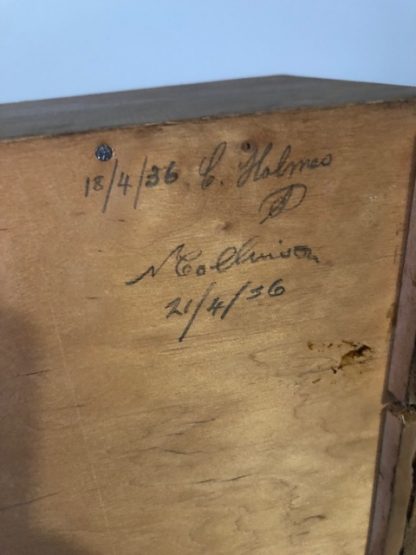 18/4/36. C. Holmes
N Collinson
21/4/36